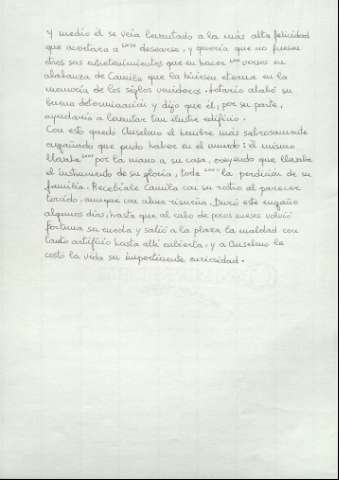 y medio él se veía levantado a la más alta felicidad
que acertara a desearse, y quería que no fuesen
otros sus entretenimientos que en hacer versos en
alabanza de Camila que la hiciesen eterna en la
memoria de los siglos venideros. Lotario alabó su
buena determinación y dijo que él, por su parte,
ayudaría a levantar tan ilustre edificio.
Con esto quedó Anselmo el hombre más sabrosamente
engañado que pudo haber en el mundo: él mismo
llevaba por la mano a su casa, creyendo que llevaba
el instrumento de su gloria, toda la perdición de su
familia. Recebíale Camila con su rostro al parecer
torcido, aunque con alma risueña. Duró este engaño
algunos días, hasta que al cabo de pocos meses volvió
fortuna su rueda y salió a la plaza la maldad con
tanto artificio hasta allí cubierta, y a Anselmo le
costó la vida su impertinente curiosidad.